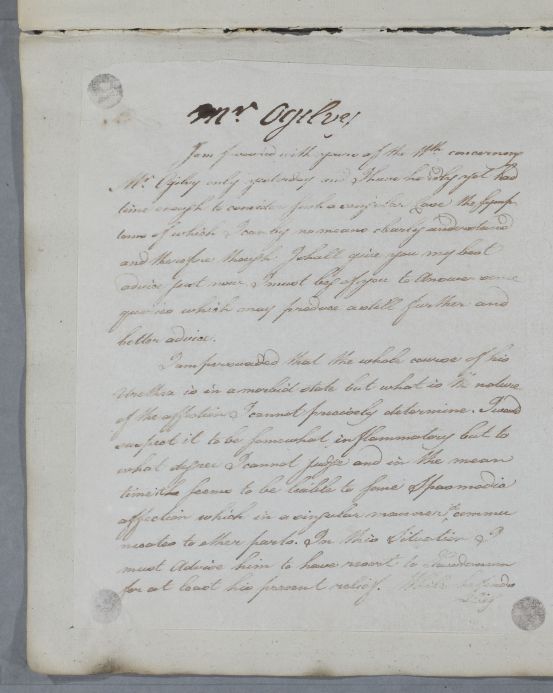 Mr. Ogilvey
I am favored with yours of the 13th concerning
Mr. Ogilvy only yesterday and I have hardly yet had
time enough to consider such a singular Case the Symp
toms of which I can by no means clearly understand
and therefore though I shall give you my best
advice just now I must beg of you to Answer some
queries which may produce a still further and
better advice.
I am persuaded that the whole course of his
Urethra is in a morbid state but what is the nature
of the affection I cannot precisely determine. I would
suspect it to be somewhat inflammatory but to
what degree I cannot judge and in the mean
time it seems to be liable to some Spasmodic
affection which in a singular manner commu
nicates to other parts. In this Situation I
must Advise him to have recourt to Laudanum
for at least his present relief. While he finds